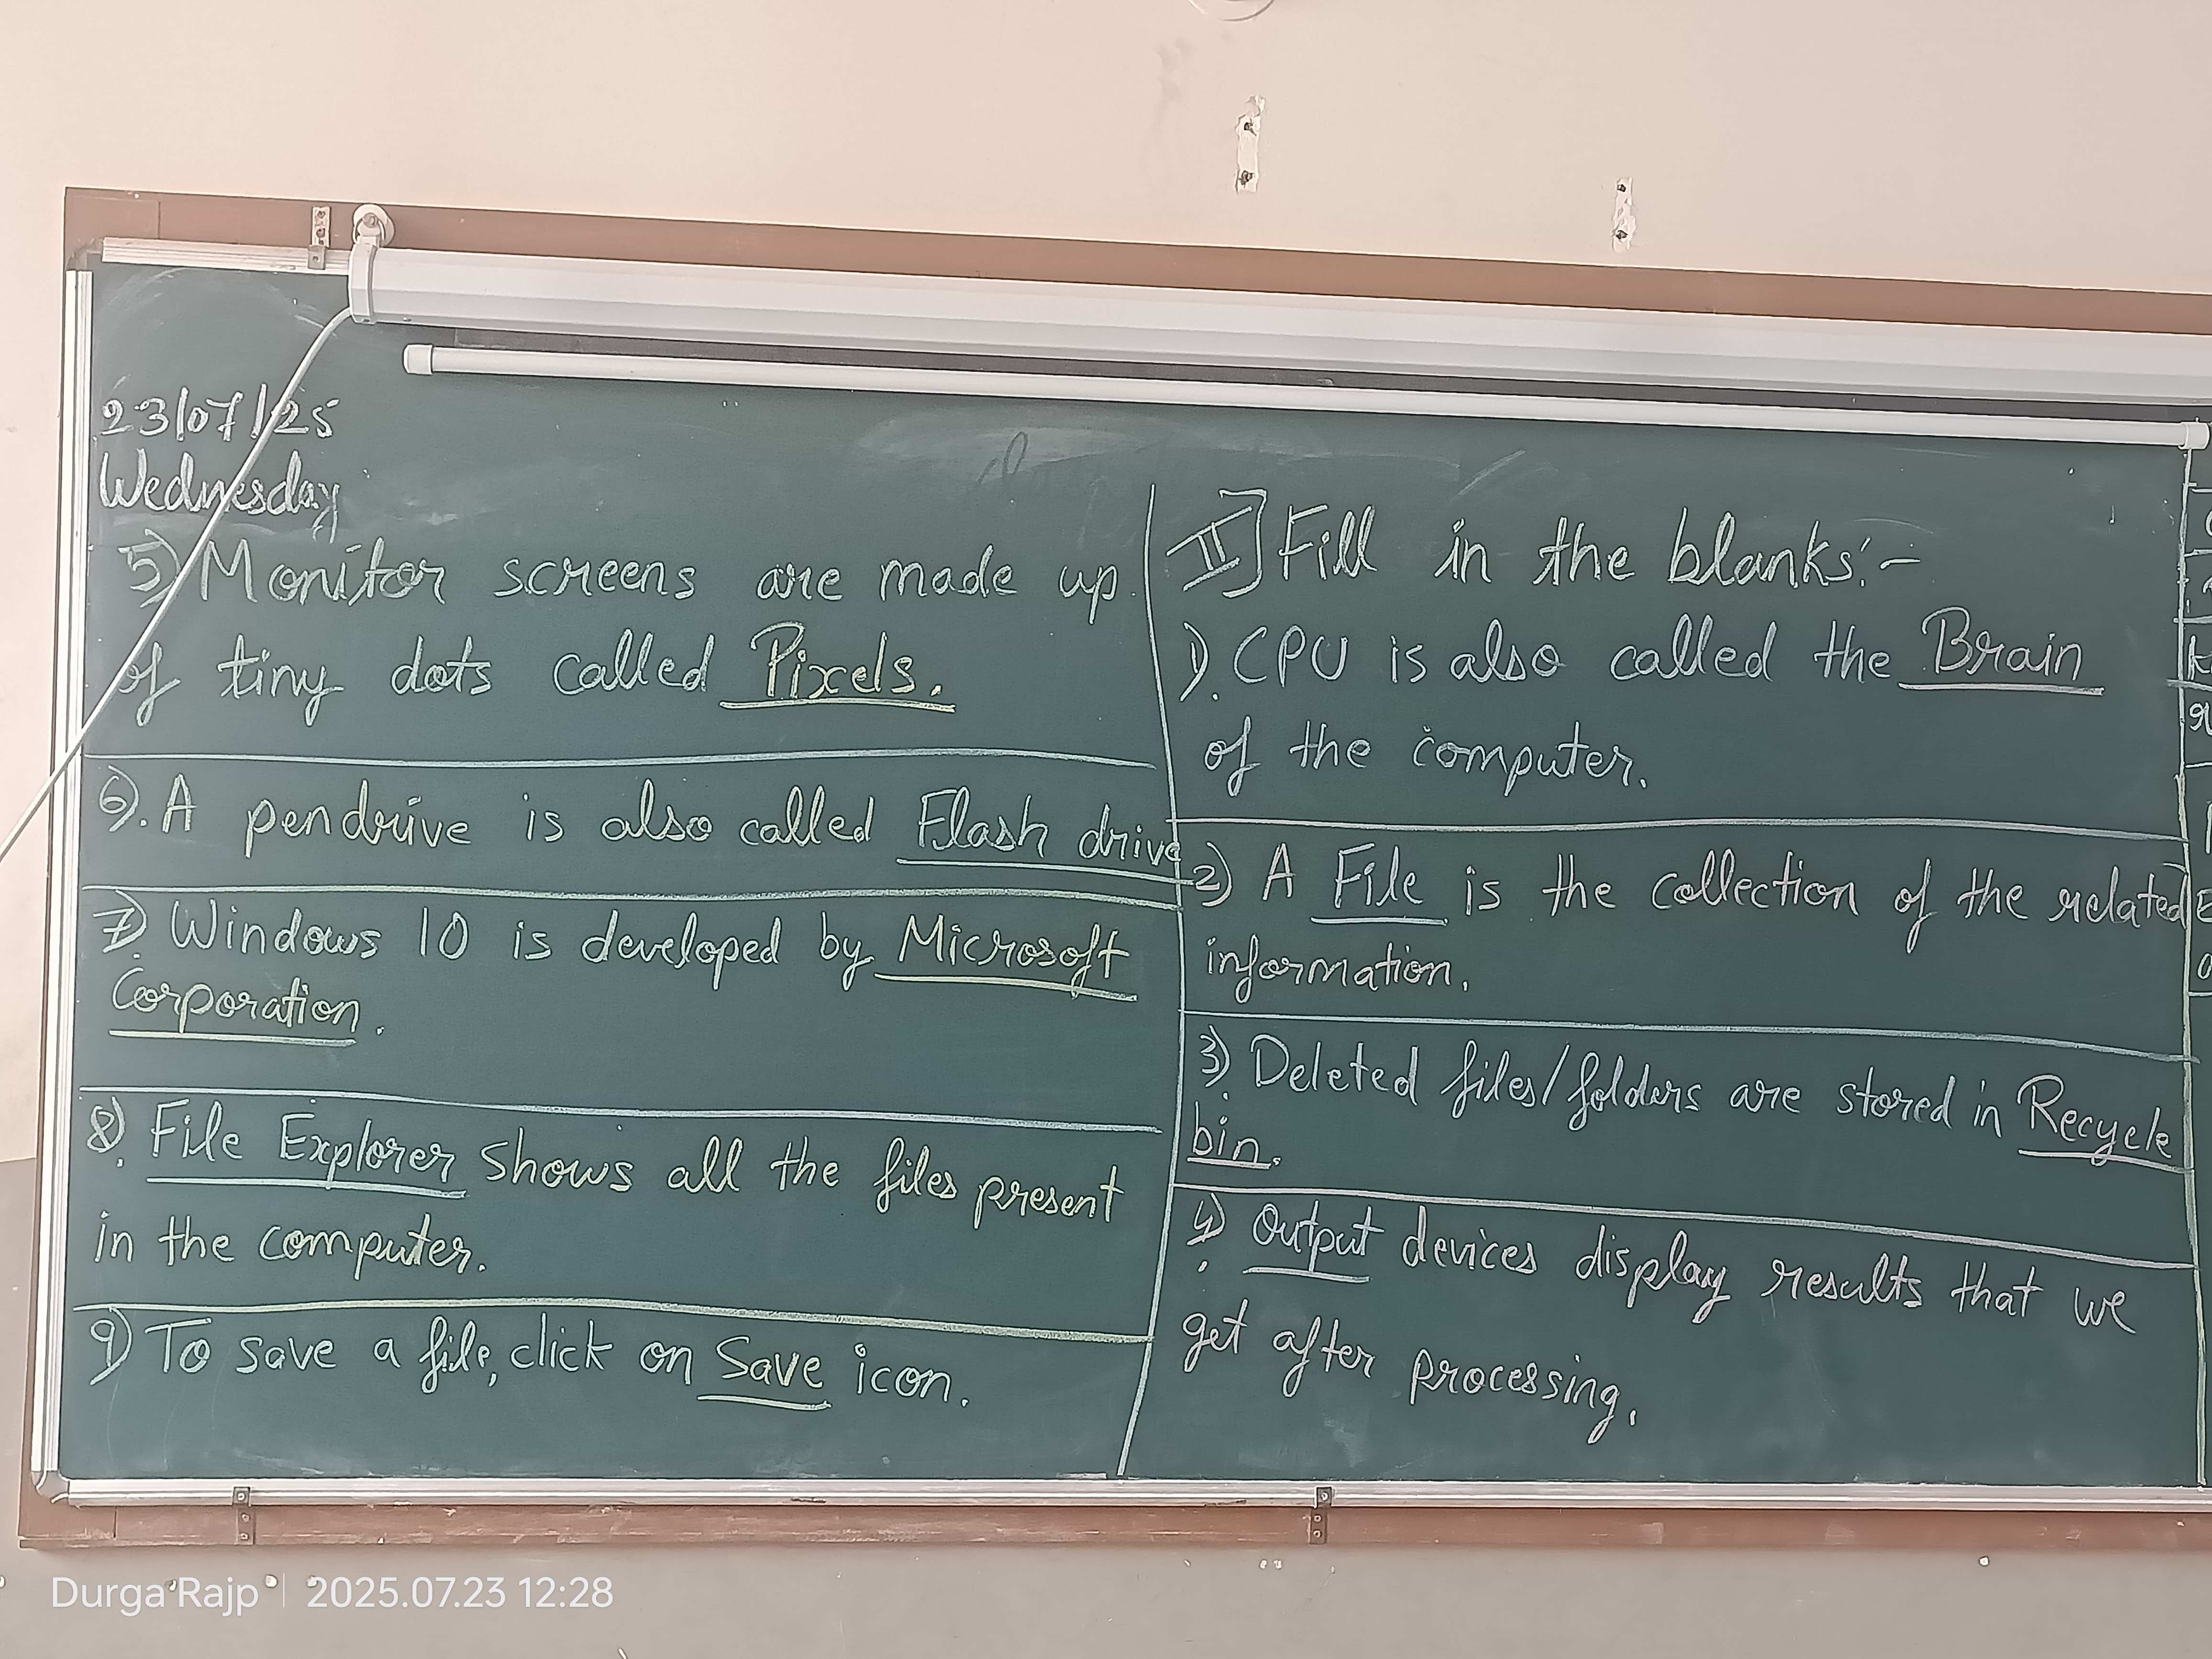 23/07/25
Wednesday
5) Monitor screens are made up
of tiny dots called Pixels.
6). A pendrive is also called Flash drive
7) Windows 10 is developed by Microsoft
Corporation.
8) File Explorer shows all the files present
in the computer.
9) To save a file, click on Save icon.
II] Fill in the blanks:-
1). CPU is also called the Brain
of the computer.
2) A File is the collection of the related
information.
3) Deleted files/folders are stored in Recycle
bin.
4) Output devices display results that we
get after processing.
Durga Rajp | 2025.07.23 12:28